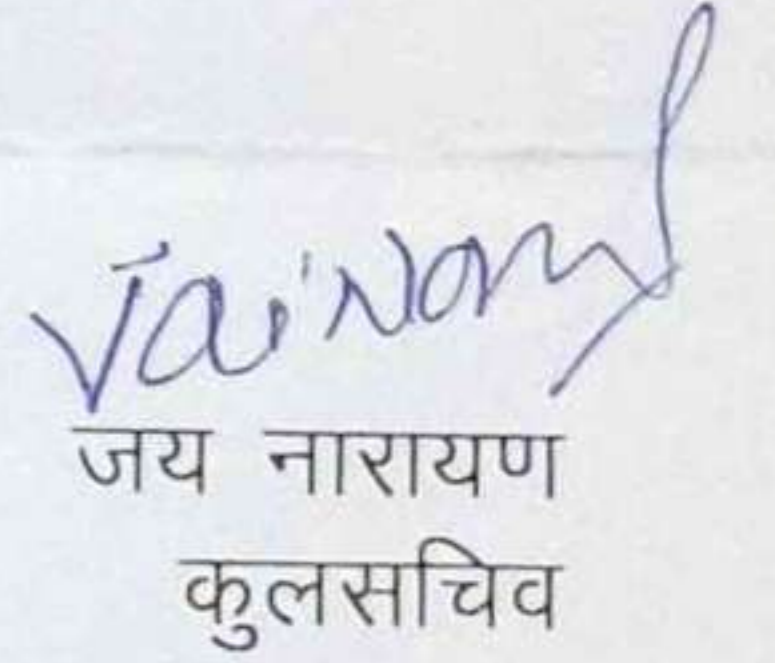 Jai Narayan
जय नारायण
कुलसचिव